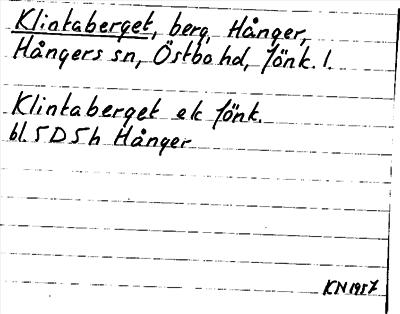 Klintaberget, berg, Hånger,
Hångers sn, Östbo hd, Jönk. l.
Klintaberget ek Jönk.
bl. 5D5h Hånger
KN 1957